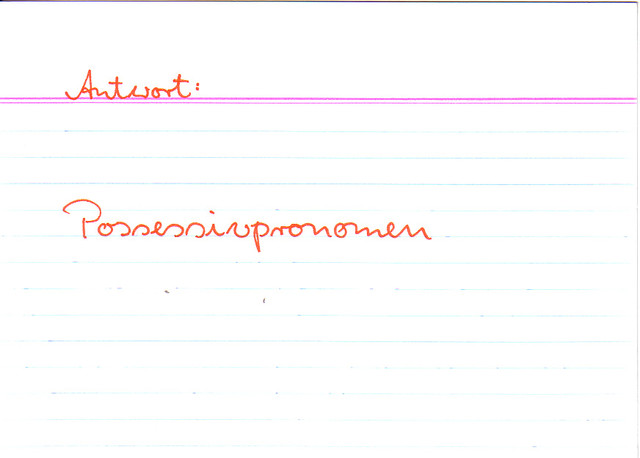 Antwort:
Possessivpronomen